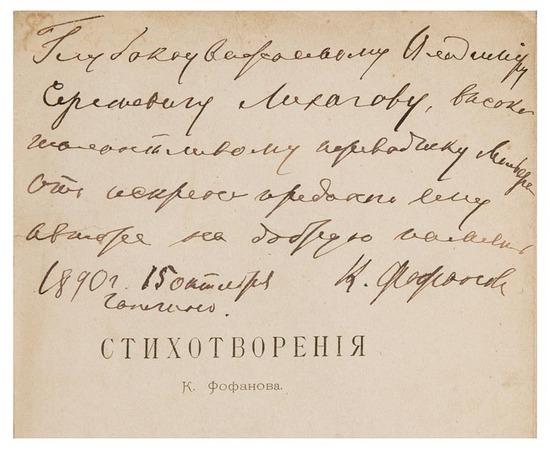 Глубокоуважаемому Владимиру
Сергеевичу Лихачову, высоко
талантливому переводчику Мольера
отъ искренно преданнаго ему
автора на добрую память
1890 г. 15 октября К. Фофановъ
Гатчино.
СТИХОТВОРЕНІЯ
К. Фофанова.